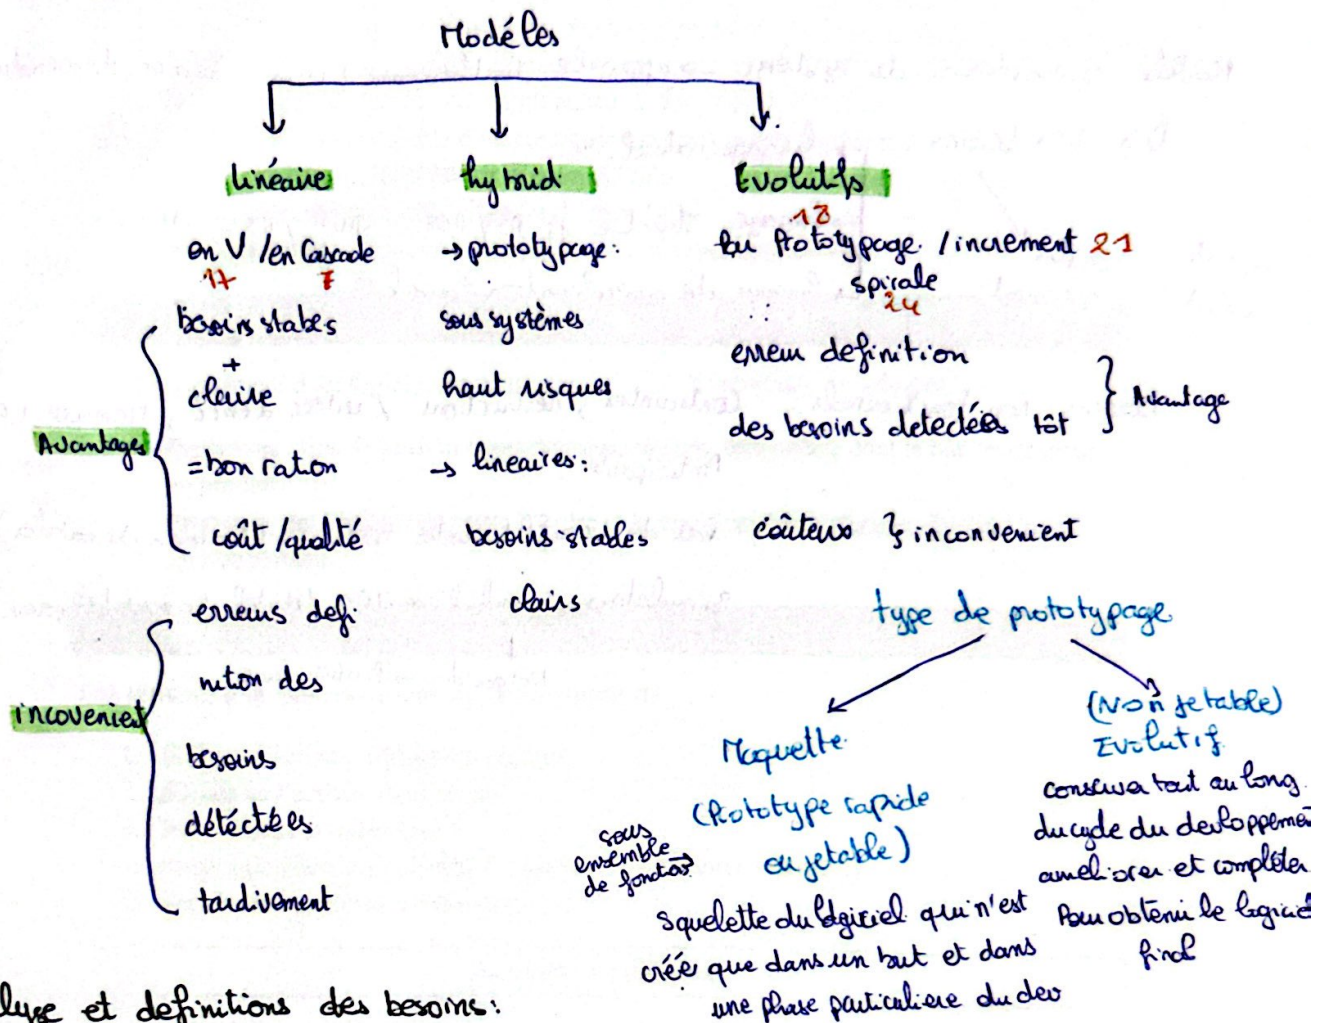 Modéles
linéaire
hybrid
Evolutifs
en V / en Cascade
17 7
besoins stables
+
claire
= bon ration
coût / qualité
Avantages
erreurs defi
niton des
besoins
détéctées
tardivement
incovenient
→ prototypage :
sous systèmes
haut risques
→ lineaires :
besoins stables
clairs
18
Prototypage / increment 21
spirale
24
erreur definition
des besoins detectées tôt
Avantage
coûteux } inconvenient
type de prototypage
Maquette
(Prototype rapide
ou jetable)
sous
ensemble
de fonctos →
squelette du logiciel qui n'est
créé que dans un but et dans
une phase particuliere du dev
(Non jetable)
Evolutif
conserver tout au long
du cycle du devloppemen
ameliorer et compléter
Pour obtenir le logicie
final
lyse et definitions des besoins :